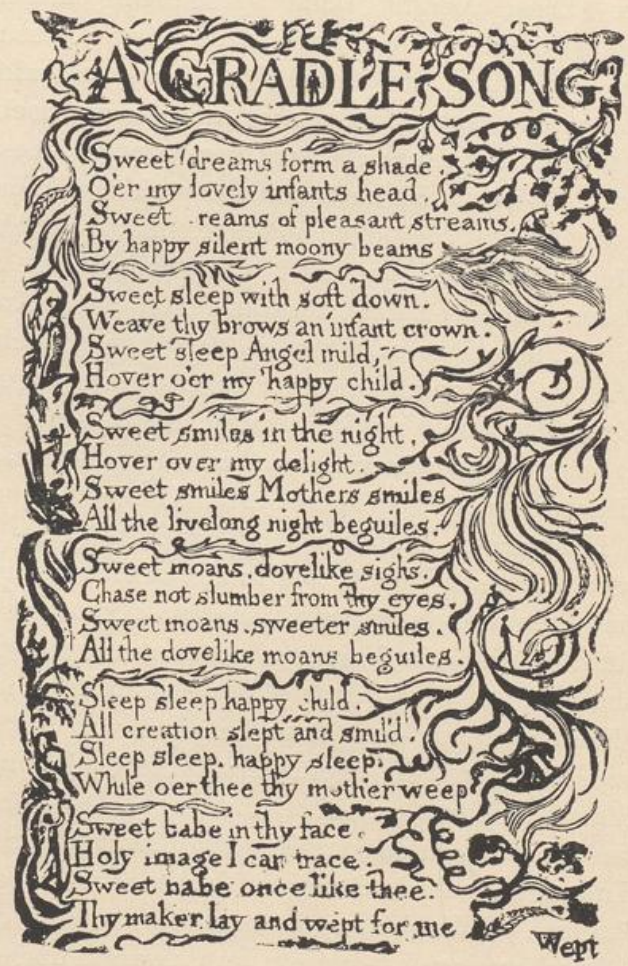 A CRADLE SONG
Sweet dreams form a shade.
O'er my lovely infants head.
Sweet reams of pleasant streams.
By happy silent moony beams
Sweet sleep with soft down.
Weave thy brows an infant crown.
Sweet sleep Angel mild,
Hover o'er my happy child.
Sweet smiles in the night.
Hover over my delight.
Sweet smiles Mothers smiles
All the livelong night beguiles.
Sweet moans, dovelike sighs.
Chase not slumber from thy eyes.
Sweet moans, sweeter smiles.
All the dovelike moans beguiles.
Sleep sleep happy child.
All creation slept and smil'd.
Sleep sleep, happy sleep,
While o'er thee thy mother weep
Sweet babe in thy face.
Holy image I can trace.
Sweet babe once like thee.
Thy maker lay and wept for me
Wept